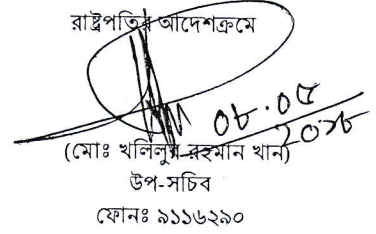 রাষ্ট্রপতির আদেশক্রমে
০৮.০৫
২০১৮
(মোঃ খলিলুর রহমান খান)
উপ-সচিব
ফোনঃ ৯১১৬২৯০